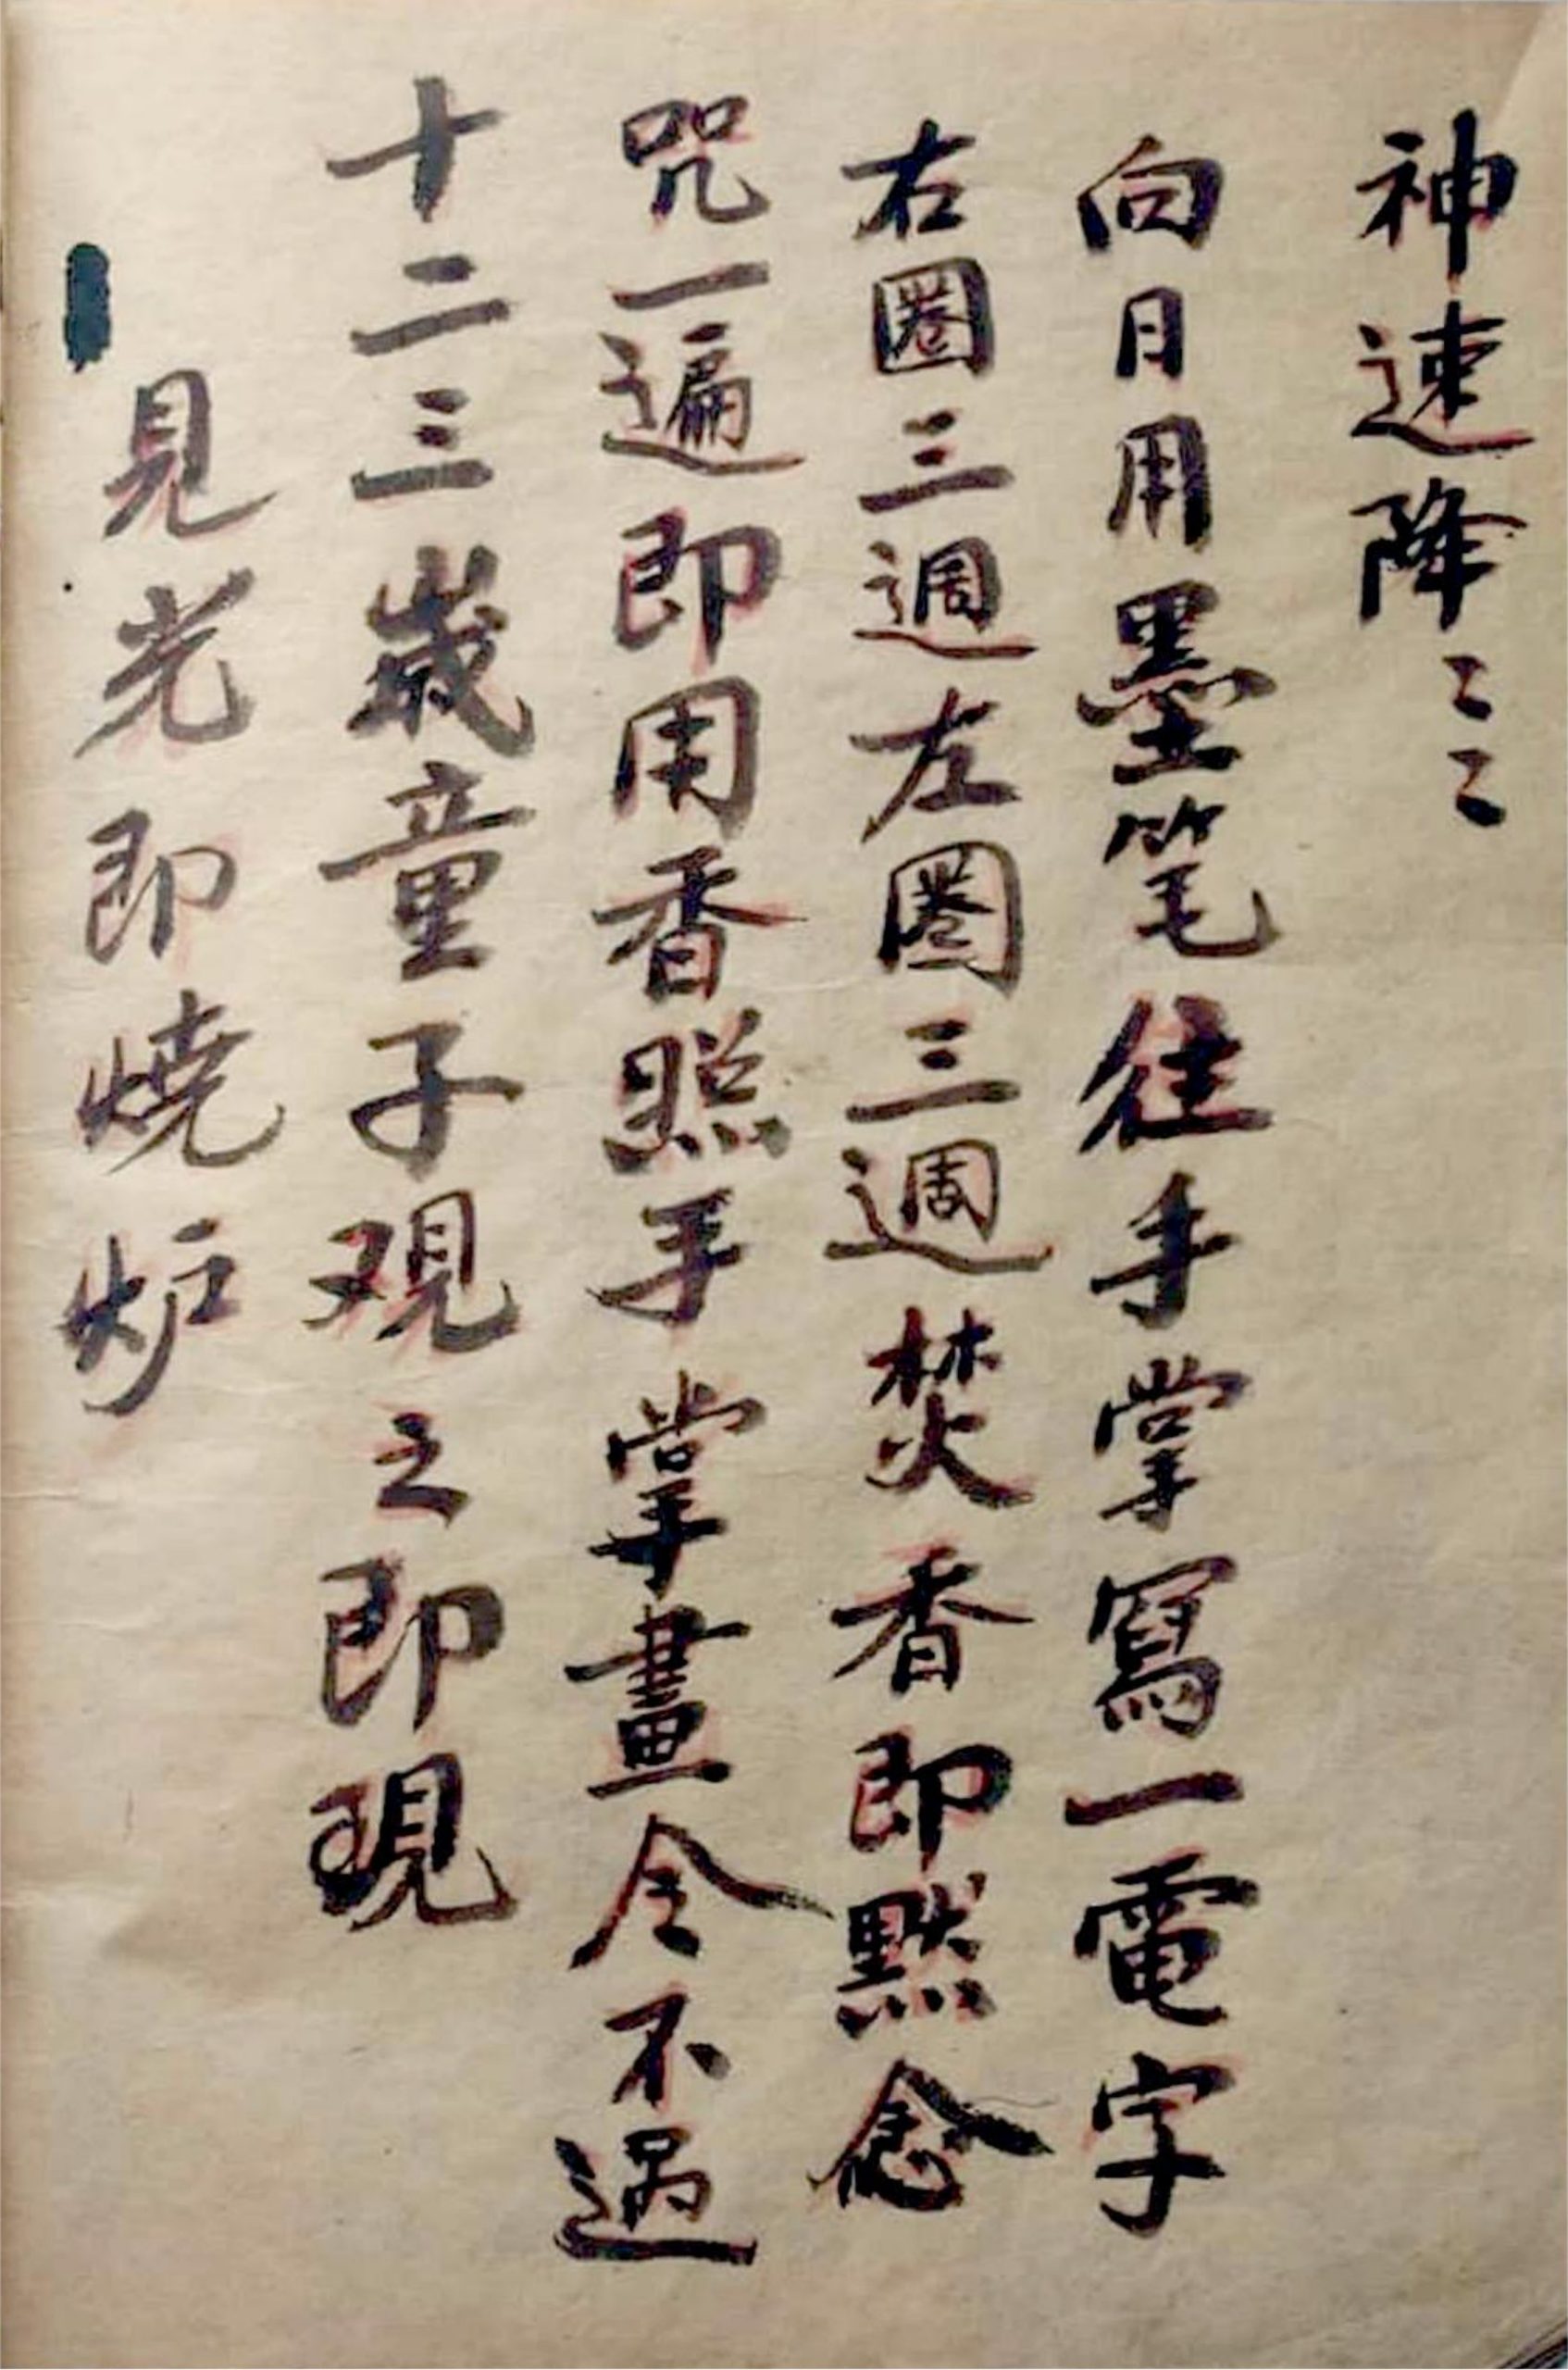 神速降〻〻
向日用墨笔往手掌寫一電字
右圈三週左圈三週焚香即默念
咒一遍即用香照手掌畫令不過
十二三歲童子观之即現
見光即燒炉